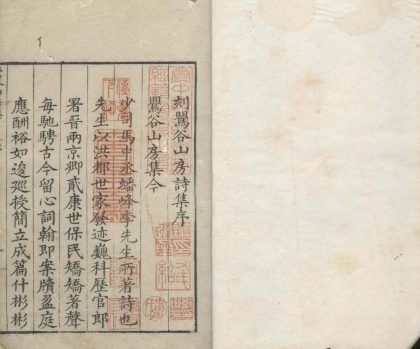 刻鷃谷山房詩集序
鷃谷山房集今
少司馬中丞蟠峰李先生所著詩也
先生以洪都世家發迹巍科歷官郎
署晉兩京卿貳康世保民矯矯著聲
每馳騁古今留心詞翰即案牘盈庭
應酬裕如逡廵授簡立成篇什彬彬